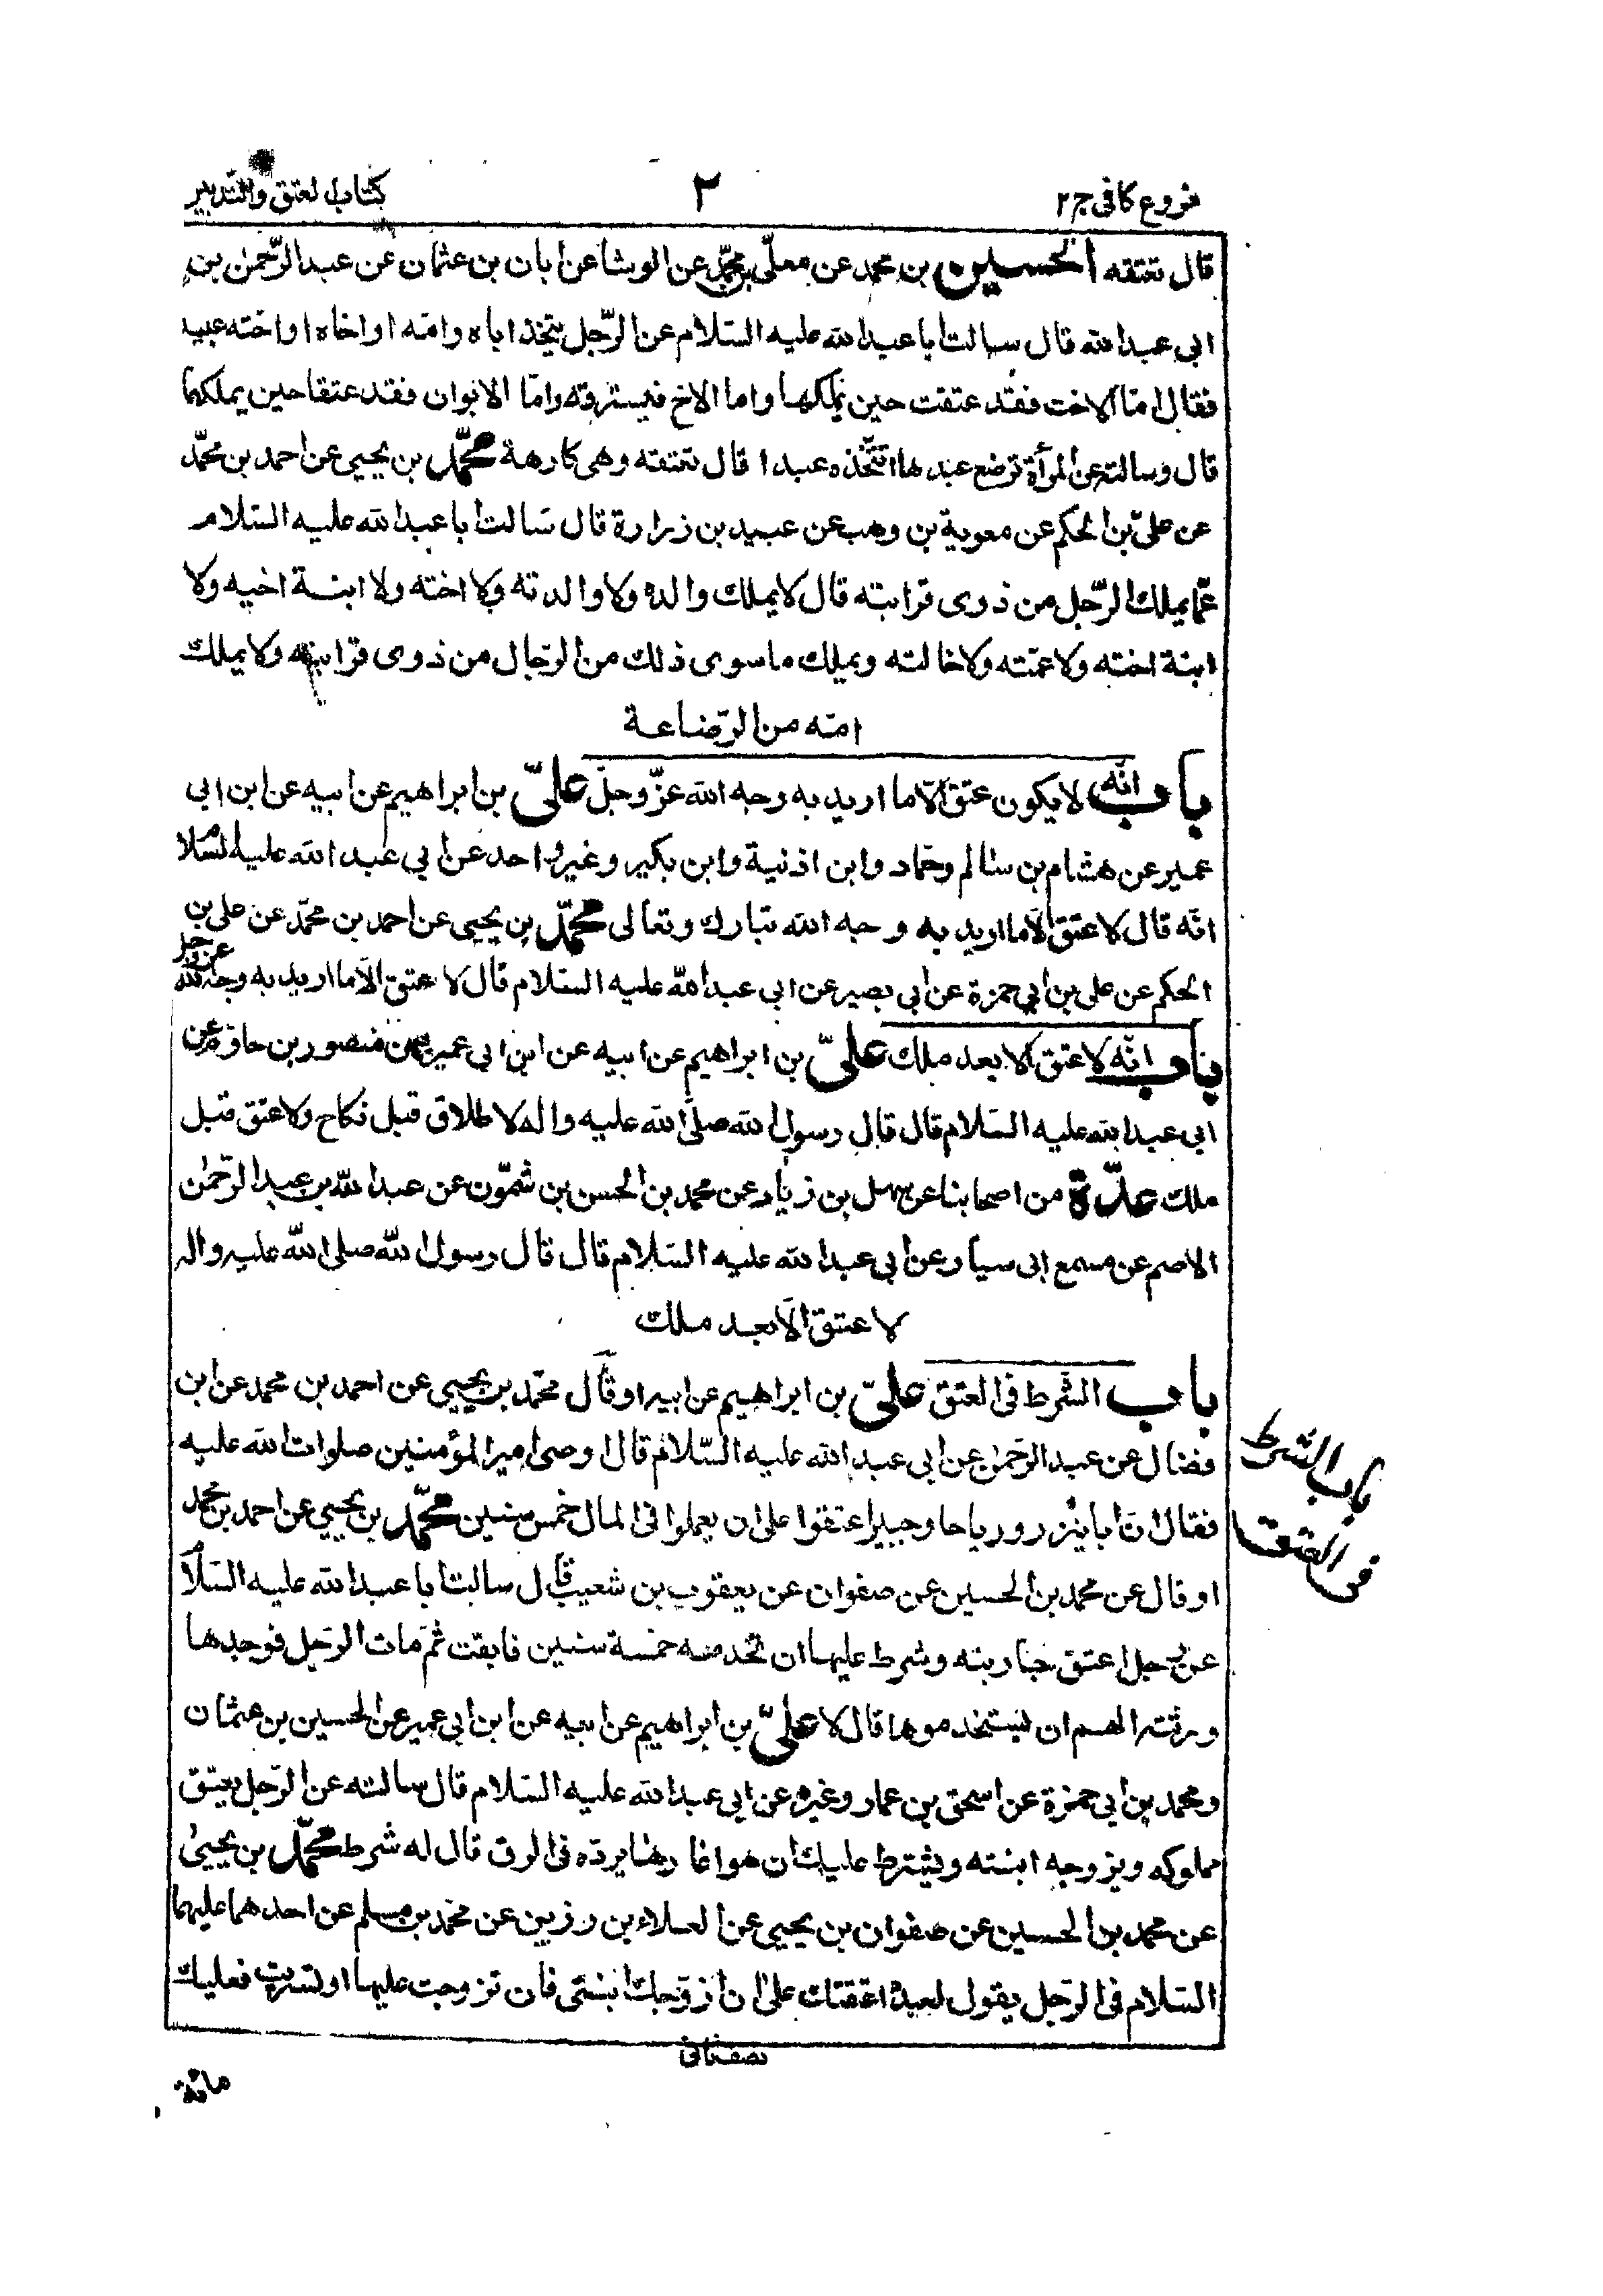 فروع كافى ج٢
٢
كتاب العتق والتدبير
قال تعتقه الحسين بن محمد عن معلّى بن محمّد عن الوشا عن ابان بن عثمان عن عبد الرّحمٰن بن
ابى عبد الله قال سالت ابا عبد الله عليه السّلام عن الرّجل يتّخذ اباه وامّه او اخاه او اخته عبيد
فقال امّا الاخت فقد عتقت حين يملكها واما الاخ فيسترقه وامّا الابوان فقد عتقا حين يملكهما
قال وسالته عن المرأة ترضع عبدها اتتّخذه عبدا قال تعتقه وهى كارهة محمّد بن يحيى عن احمد بن محمّد
عن علىّ بن الحكم عن معوية بن وهب عن عبيد بن زرارة قال سَالت ابا عبد الله عليه السّلام
عمّا يملك الرّجل من ذوى قرابته قال لا يملك والده ولا والدته ولا اخته ولا ابنة اخيه ولا
ابنة اخته ولا عمّته ولا خالته ويملك ما سوى ذلك من الرّجال من ذوى قرابته ولا يملك
امّه من الرّضاعة
باب انّه لا يكون عتق الّا ما اريد به وجه الله عزّ وجلّ علىّ بن ابراهيم عن ابيه عن ابن ابى
عمير عن هشام بن سالم وحمّاد وابن اذنية وابن بكير وغير واحد عن ابى عبد الله عليه السّلام
انّه قال لا عتق الّا ما اريد به وجه الله تبارك وتعالى محمّد بن يحيى عن احمد بن محمّد عن على بن
الحكم عن على بن ابى حمزة عن ابى بصير عن ابى عبد الله عليه السّلام قال لا عتق الّا ما اريد به وجه الله عز وجل
باب انّه لا عتق الا بعد ملك علىّ بن ابراهيم عن ابيه عن ابن ابى عمير عن منصور بن حازم عن
ابى عبد الله عليه السّلام قال قال رسول الله صلّى الله عليه واله لا طلاق قبل نكاح ولا عتق قبل
ملك عدّة من اصحابنا عن سهل بن زياد عن محمد بن الحسن بن شمّون عن عبد الله بن عبد الرّحمٰن
الاصم عن مسمع ابى سيار عن ابى عبد الله عليه السّلام قال قال رسول الله صلى الله عليه واله
لا عتق الّا بعد ملك
باب الشّرط فى العتق علىّ بن ابراهيم عن ابيه او قال محمّد بن يحيى عن احمد بن محمد عن ابن
فضال عن عبد الرّحمٰن عن ابى عبد الله عليه السّلام قال اوصى امير المؤمنين صلوات الله عليه
فقال انّ ابا نيزر ورياحا وجبيرا عتقوا على ان يعملوا فى المال خمس سنين محمّد بن يحيى عن احمد بن محمد
او قال عن محمد بن الحسين عن صفوان عن يعقوب بن شعيب قال سالت ابا عبد الله عليه السّلام
عن رجل اعتق جاريته وشرط عليها ان تخدمه خمسة سنين فابقت ثمّ مات الرّجل فوجدها
ورثته الهم ان يستخدموها قال لا علىّ بن ابراهيم عن ابيه عن ابن ابى عمير عن الحسين بن عثمان
ومحمد بن ابى حمزة عن اسحٰق بن عمار وغيره عن ابى عبد الله عليه السّلام قال سالته عن الرّجل يعتق
مملوكه ويزوجه ابنته ويشترط عليه ان هو اغارها ان يردّه فى الرق قال له شرطه محمّد بن يحيىٰ
عن محمد بن الحسين عن صفوان بن يحيى عن العلاء بن رزين عن محمّد بن مسلم عن احدهما عليهما
السّلام فى الرّجل يقول لعبده اعتقتك علىٰ ان ازوّجك ابنتى فان تزوجت عليها او تسريت فعليك
باب الشرط
فى العتق
نصف ثانى
مائة